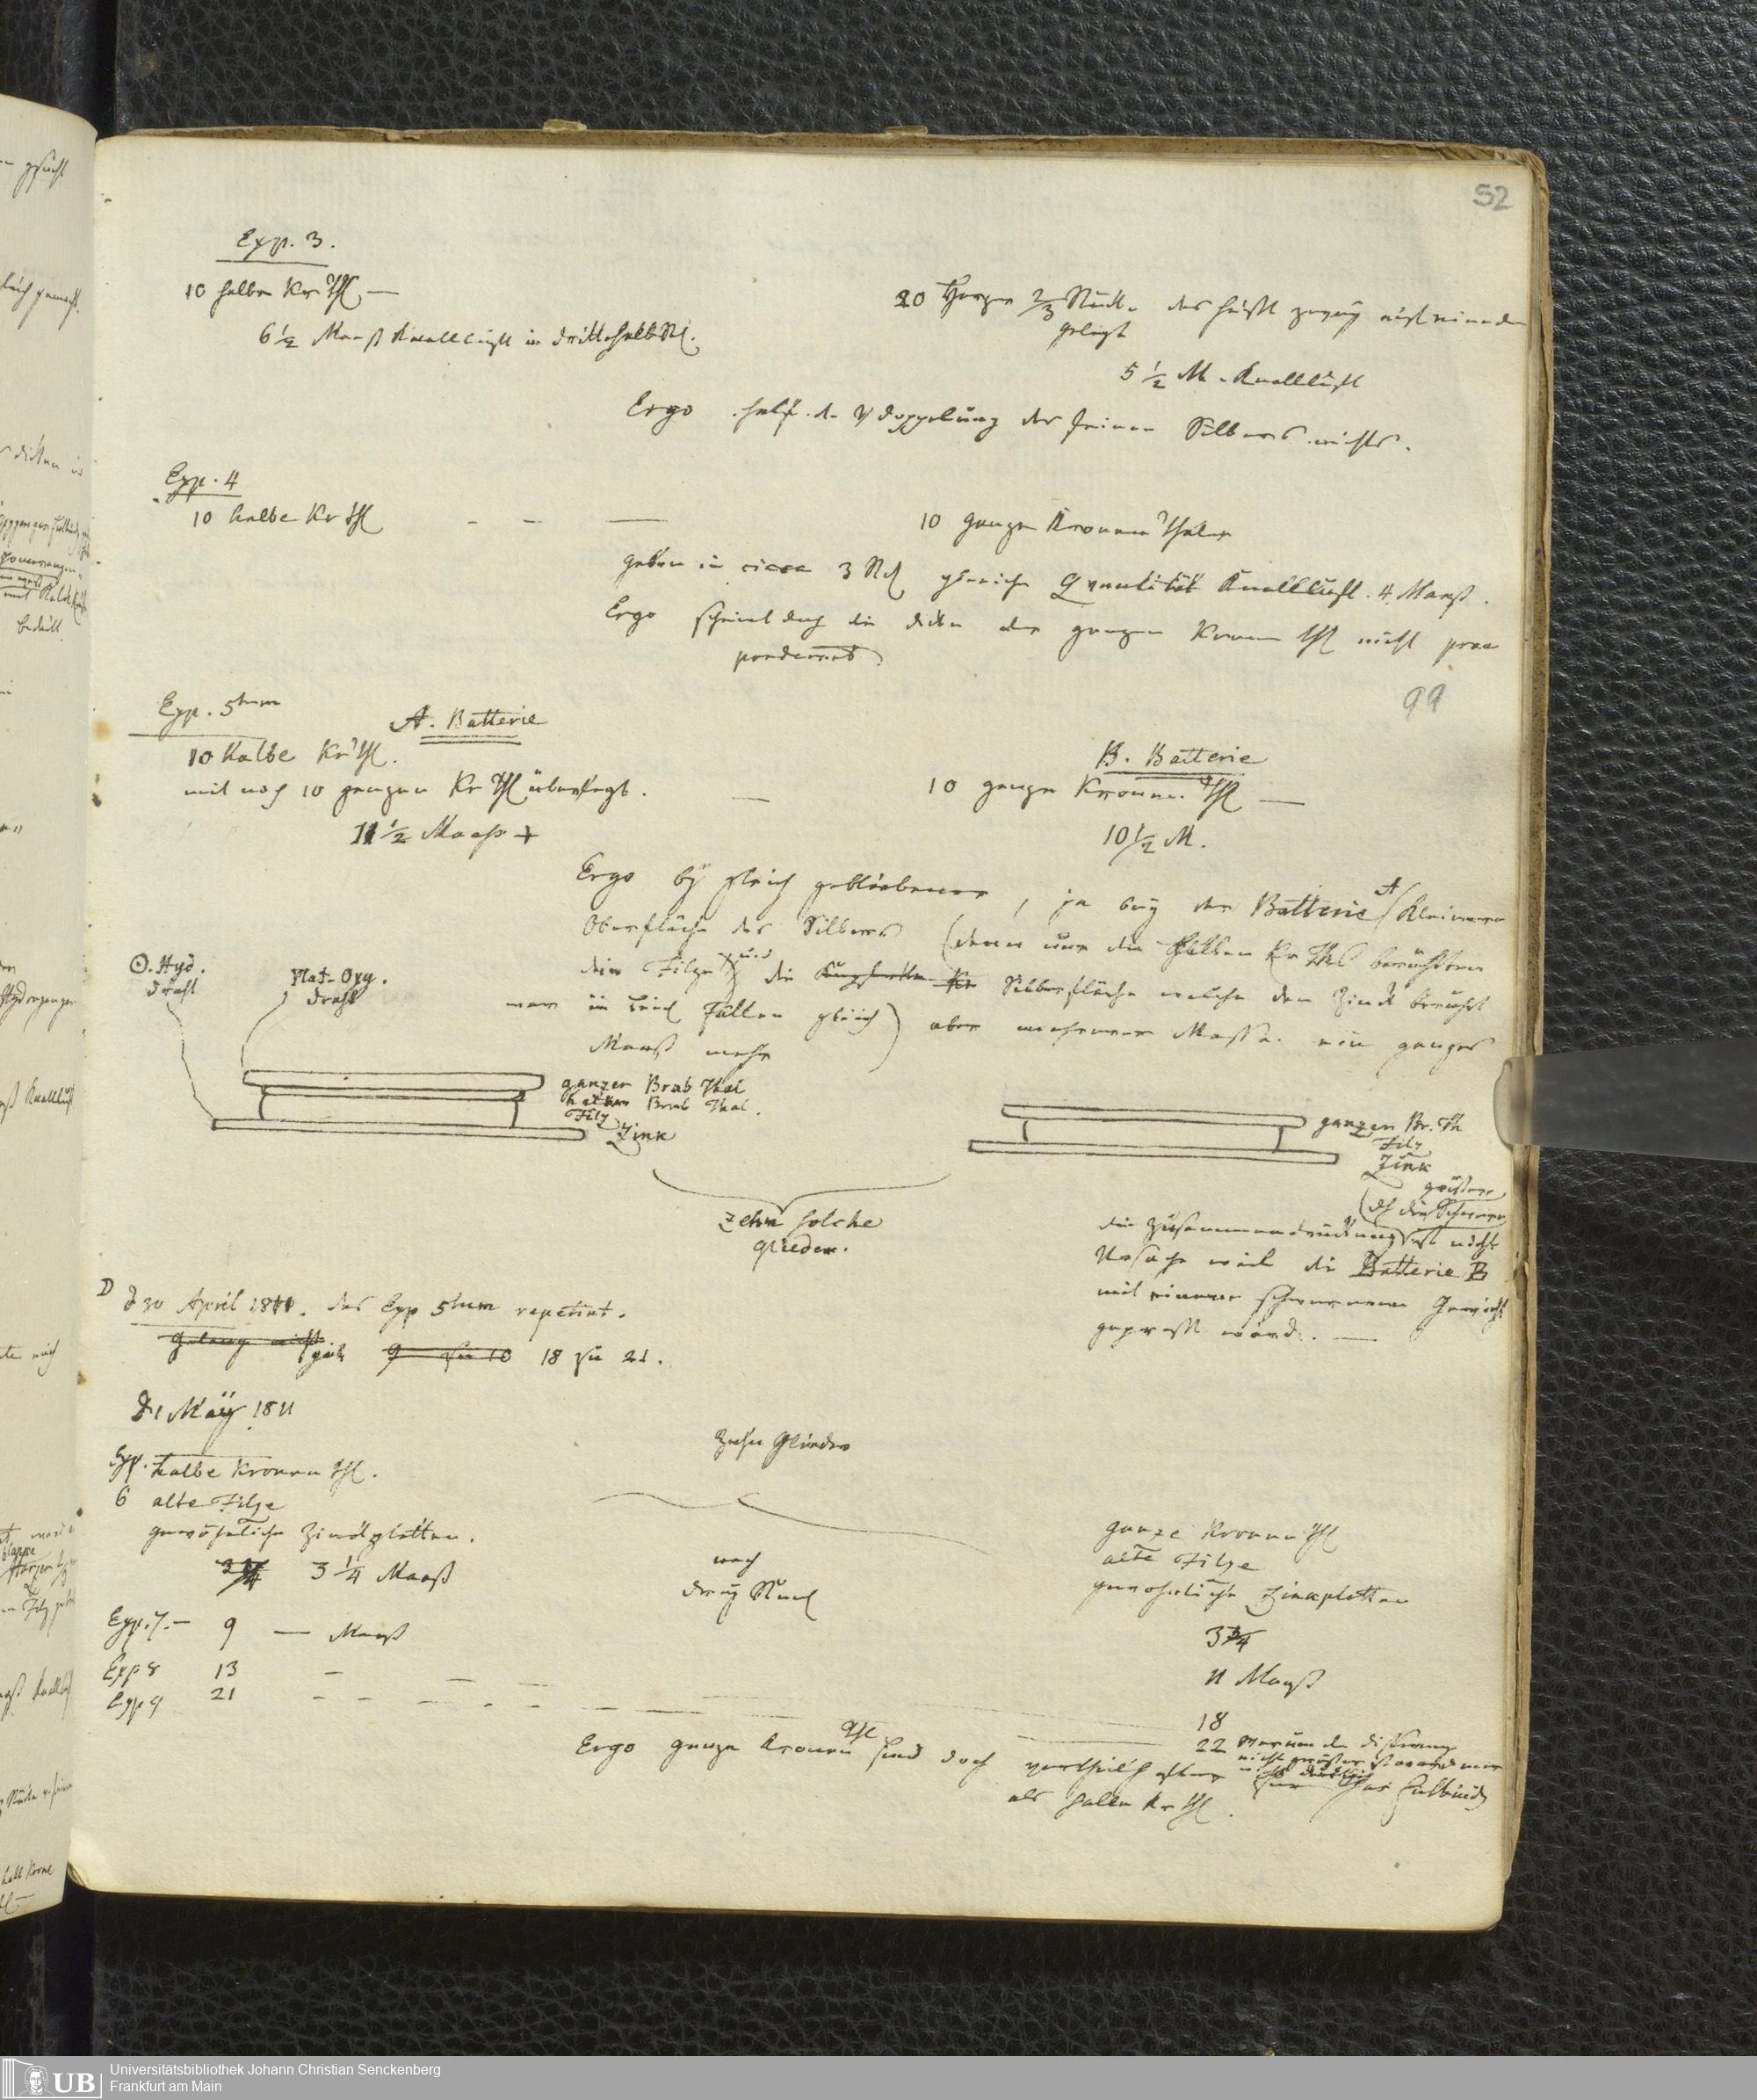 52
Exp. 3.
10 halbe Kr Thl —
6 1/2 Maaß Knallluft in dritthalb St.
20 Harzer 2/3 Stück. das heißt zwey aufeinander
gelegt
5 1/2 M. Knallluft
Ergo half d. Verdoppelung des feinen Silbers nichts.
Exp. 4
10 halbe Kr Thl — — —
10 ganze Kronen Thaler
geben in circa 3 Std gleiche Quantität Knallluft. 4 Maaß.
Ergo scheint doch die dicke der ganzen Kronen Thl nicht prae
ponderirend
99
Exp. 5tum
A. Batterie
10 halbe Kr Thl.
mit noch 10 ganzen Kr Thl überlegt. —
11 1/2 Maaß +
B. Batterie
10 ganze Kronen. Thl —
10 1/2 M.
Ergo bey gleich gebliebener, ja bey der Batterie A kleinerer
Oberfläche des Silbers (denn nur die halben Kr Thl berührten
die Filze und die Silberfläche welche den Zink berührt
war in beid Fällen gleich) aber mehrerer Masse. ein ganzes
Maaß mehr
☉. Hyd.
draht
Plat. Oxy.
draht
ganzer Brab Thal
halber Brab Thal.
Filz
Zink
ganzer Br. Th
Filz
Zink
zehn solche
Glieder.
größere
(d die Schwere
die Zusammendrückung ist nicht
Ursache weil die Batterie B
mit einem schwereren Gewicht
gepreßt ward. —
D 30 April 1811. das Exp 5tum repetirt.
Gelang nicht gab 9 zu 10 18 zu 21.
D 1 May 1811
Exp. halbe Kronen Thl.
6 alte Filze
gewöhnliche Zinkplatten.
3 1/4 Maaß
Zehn Glieder
nach
drey Stund
ganze Kronen Thl
alte Filze
gewöhnliche Zinkplatten
3 3/4
Exp. 7. — 9 — Maaß
11 Maaß
Exp 8 13 — —
18
Exp 9 21 — — — — —
22 Warum die differenz
nicht größer
Ergo ganze Kronen Thl sind doch vortheilhafter
als halbe Kr Thl.
UB
Universitätsbibliothek Johann Christian Senckenberg
Frankfurt am Main